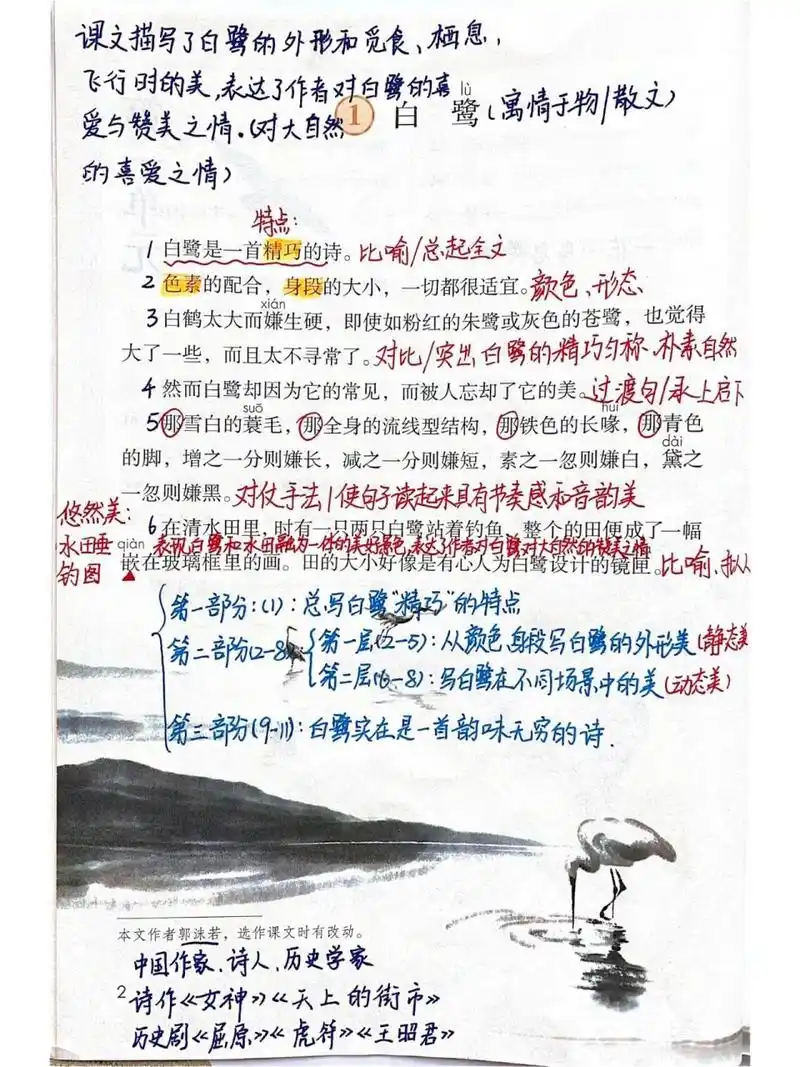 课文描写了白鹭的外形和觅食、栖息、
飞行时的美,表达了作者对白鹭的喜
爱与赞美之情.(对大自然
的喜爱之情)
lù
1 白鹭(寓情于物/散文)
特点:
1 白鹭是一首精巧的诗。比喻/总起全文
2 色素的配合,身段的大小,一切都很适宜。颜色、形态
xián
3 白鹤太大而嫌生硬,即使如粉红的朱鹭或灰色的苍鹭,也觉得
大了一些,而且太不寻常了。对比/突出白鹭的精巧匀称、朴素自然
4 然而白鹭却因为它的常见,而被人忘却了它的美。过渡句/承上启下
suō huì
5 那雪白的蓑毛,那全身的流线型结构,那铁色的长喙,那青色
dài
的脚,增之一分则嫌长,减之一分则嫌短,素之一忽则嫌白,黛之
一忽则嫌黑。对仗手法/使句子读起来具有节奏感和音韵美
悠然美:
水田垂
钓图
6 在清水田里,时有一只两只白鹭站着钓鱼,整个的田便成了一幅
qiàn 表现白鹭和水田融为一体的美好景色,表达了作者对白鹭对大自然的赞美之情
嵌在玻璃框里的画。田的大小好像是有心人为白鹭设计的镜匣。比喻、拟人
第一部分:(1):总写白鹭"精巧"的特点
第二部分(2-8) 第一层(2-5):从颜色身段写白鹭的外形美(静态美
第二层(6-8):写白鹭在不同场景中的美(动态美)
第三部分(9-11):白鹭实在是一首韵味无穷的诗.
本文作者郭沫若,选作课文时有改动。
中国作家、诗人、历史学家
2 诗作《女神》《天上的街市》
历史剧《屈原》《虎符》《王昭君》